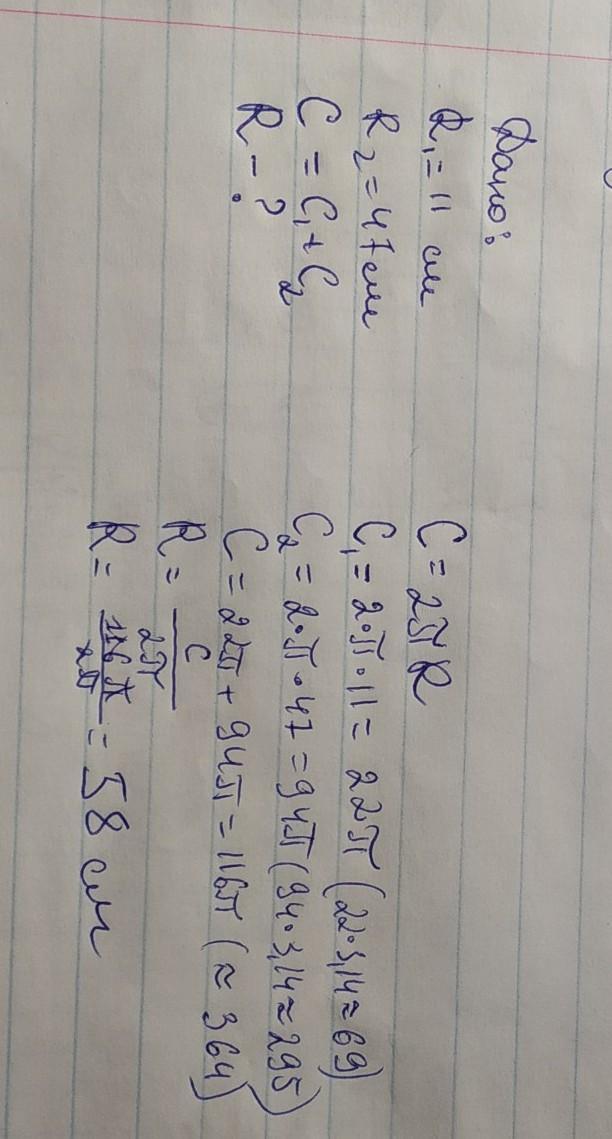 Дано:
R₁ = 11 см
R₂ = 47 см
C = C₁ + C₂
R - ?
C = 2πR
C₁ = 2·π·11 = 22π (22·3,14 ≈ 69)
C₂ = 2·π·47 = 94π (94·3,14 ≈ 295)
C = 22π + 94π = 116π (≈ 364)
R = C / 2π
R = 116π / 2π = 58 см